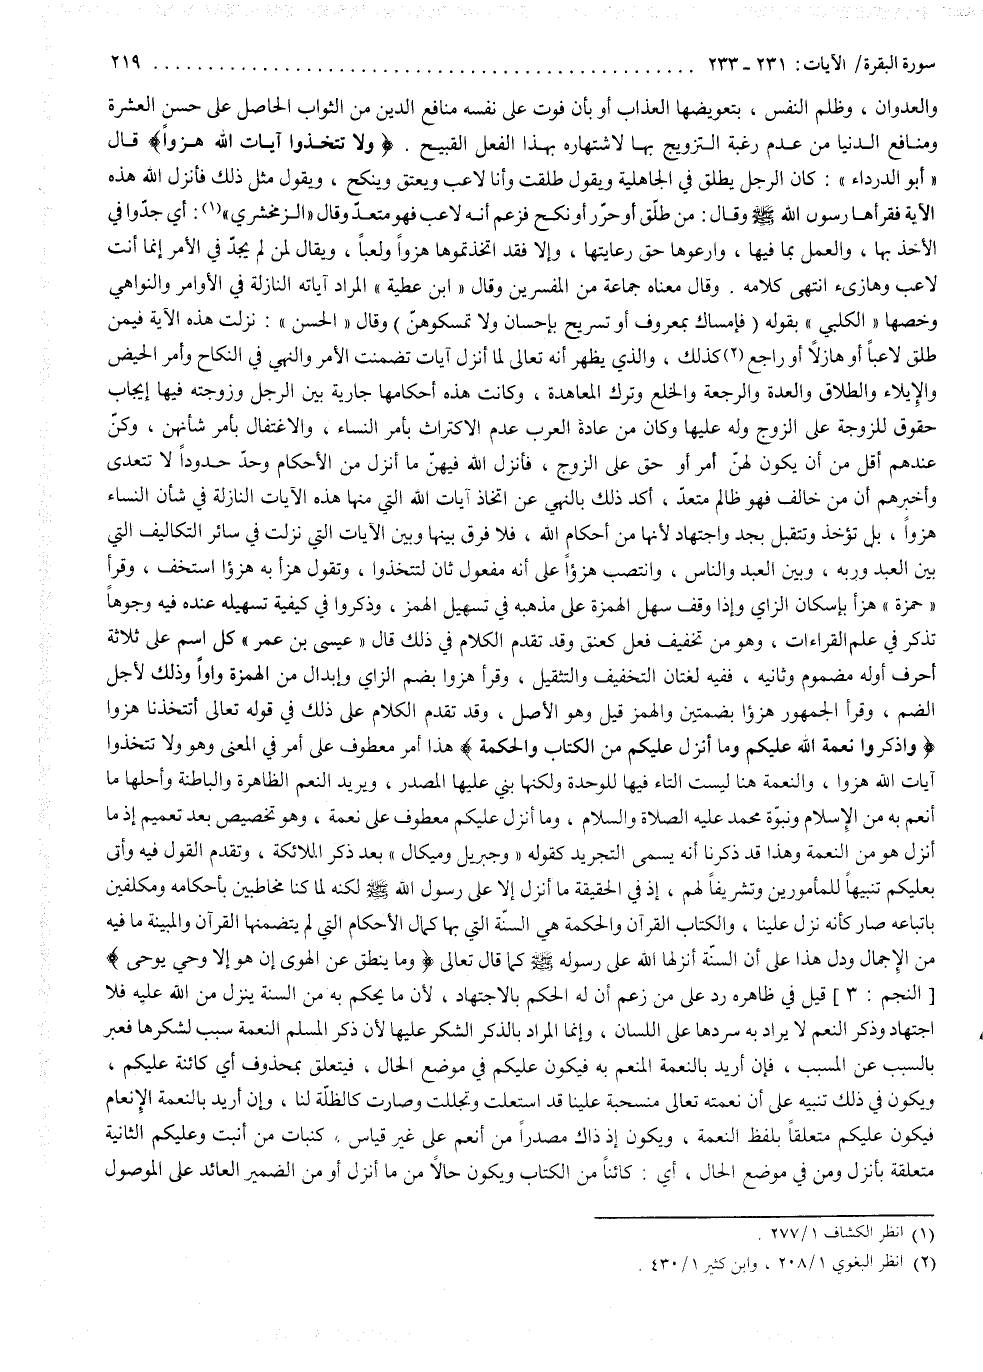 سورة البقرة/ الآيات: ٢٣١ - ٢٣٣ ................................................ ٢١٩
والعدوان ، وظلم النفس ، بتعويضها العذاب أو بأن فوت على نفسه منافع الدين من الثواب الحاصل على حسن العشرة
ومنافع الدنيا من عدم رغبة التزويج بها لاشتهاره بهذا الفعل القبيح . ﴿ ولا تتخذوا آيات الله هزواً﴾ قال
« أبو الدرداء » : كان الرجل يطلق في الجاهلية ويقول طلقت وأنا لاعب ويعتق وينكح ، ويقول مثل ذلك فأنزل الله هذه
الآية فقرأها رسول الله ﷺ وقال: من طلّق أو حرّر أو نكح فزعم أنه لاعب فهو متعدّ وقال «الزمخشري»(١): أي جدّوا في
الأخذ بها ، والعمل بما فيها ، وارعوها حق رعايتها ، وإلا فقد اتخذتموها هزواً ولعباً ، ويقال لمن لم يجدّ في الأمر إنما أنت
لاعب وهازىء انتهى كلامه . وقال معناه جماعة من المفسرين وقال « ابن عطية » المراد آياته النازلة في الأوامر والنواهي
وخصها « الكلبي » بقوله ( فإمساك بمعروف أو تسريح بإحسان ولا تمسكوهنّ ) وقال « الحسن » : نزلت هذه الآية فيمن
طلق لاعباً أو هازلاً أو راجع (٢)كذلك ، والذي يظهر أنه تعالى لما أنزل آيات تضمنت الأمر والنهي في النكاح وأمر الحيض
والإيلاء والطلاق والعدة والرجعة والخلع وترك المعاهدة ، وكانت هذه أحكامها جارية بين الرجل وزوجته فيها إيجاب
حقوق للزوجة على الزوج وله عليها وكان من عادة العرب عدم الاكتراث بأمر النساء ، والاغتفال بأمر شأنهن ، وكنّ
عندهم أقل من أن يكون لهنّ أمر أو حق على الزوج ، فأنزل الله فيهنّ ما أنزل من الأحكام وحدّ حدوداً لا تتعدى
وأخبرهم أن من خالف فهو ظالم متعدّ ، أكد ذلك بالنهي عن اتخاذ آيات الله التي منها هذه الآيات النازلة في شأن النساء
هزواً ، بل تؤخذ وتتقبل بجد واجتهاد لأنها من أحكام الله ، فلا فرق بينها وبين الآيات التي نزلت في سائر التكاليف التي
بين العبد وربه ، وبين العبد والناس ، وانتصب هزؤاً على أنه مفعول ثان لتتخذوا ، وتقول هزأ به هزؤا استخف ، وقرأ
« حمزة » هزأ بإسكان الزاي وإذا وقف سهل الهمزة على مذهبه في تسهيل الهمز ، وذكروا في كيفية تسهيله عنده فيه وجوهاً
تذكر في علم القراءات ، وهو من تخفيف فعل كعنق وقد تقدم الكلام في ذلك قال « عيسى بن عمر » كل اسم على ثلاثة
أحرف أوله مضموم وثانيه ، ففيه لغتان التخفيف والتثقيل ، وقرأ هزوا بضم الزاي وإبدال من الهمزة واواً وذلك لأجل
الضم ، وقرأ الجمهور هزؤا بضمتين والهمز قيل وهو الأصل ، وقد تقدم الكلام على ذلك في قوله تعالى أتتخذنا هزوا
﴿ واذكروا نعمة الله عليكم وما أنزل عليكم من الكتاب والحكمة ﴾ هذا أمر معطوف على أمر في المعنى وهو ولا تتخذوا
آيات الله هزوا ، والنعمة هنا ليست التاء فيها للوحدة ولكنها بني عليها المصدر ، ويريد النعم الظاهرة والباطنة وأحلها ما
أنعم به من الإسلام ونبوّة محمد عليه الصلاة والسلام ، وما أنزل عليكم معطوف على نعمة ، وهو تخصيص بعد تعميم إذ ما
أنزل هو من النعمة وهذا قد ذكرنا أنه يسمى التجريد كقوله « وجبريل وميكال » بعد ذكر الملائكة ، وتقدم القول فيه وأتى
بعليكم تنبيهاً للمأمورين وتشريفاً لهم ، إذ في الحقيقة ما أنزل إلا على رسول الله ﷺ لكنه لما كنا مخاطبين بأحكامه ومكلفين
باتباعه صار كأنه نزل علينا ، والكتاب القرآن والحكمة هي السنّة التي بها كمال الأحكام التي لم يتضمنها القرآن والمبينة ما فيه
من الإجمال ودل هذا على أن السنّة أنزلها الله على رسوله ﷺ كما قال تعالى ﴿ وما ينطق عن الهوى إن هو إلا وحي يوحى ﴾
[ النجم : ٣ ] قيل في ظاهره رد على من زعم أن له الحكم بالاجتهاد ، لأن ما يحكم به من السنة ينزل من الله عليه فلا
اجتهاد وذكر النعم لا يراد به سردها على اللسان ، وإنما المراد بالذكر الشكر عليها لأن ذكر المسلم النعمة سبب لشكرها فعبر
بالسبب عن المسبب ، فإن أريد بالنعمة المنعم به فيكون عليكم في موضع الحال ، فيتعلق بمحذوف أي كائنة عليكم ،
ويكون في ذلك تنبيه على أن نعمته تعالى منسحبة علينا قد استعلت وتجللت وصارت كالظلّة لنا ، وإن أريد بالنعمة الإنعام
فيكون عليكم متعلقاً بلفظ النعمة ، ويكون إذ ذاك مصدراً من أنعم على غير قياس ، كنبات من أنبت وعليكم الثانية
متعلقة بأنزل ومن في موضع الحال ، أي : كائناً من الكتاب ويكون حالاً من ما أنزل أو من الضمير العائد على الموصول
(١) انظر الكشاف ٢٧٧/١ .
(٢) انظر البغوي ٢٠٨/١ ، وابن كثير ٤٣٠/١ .